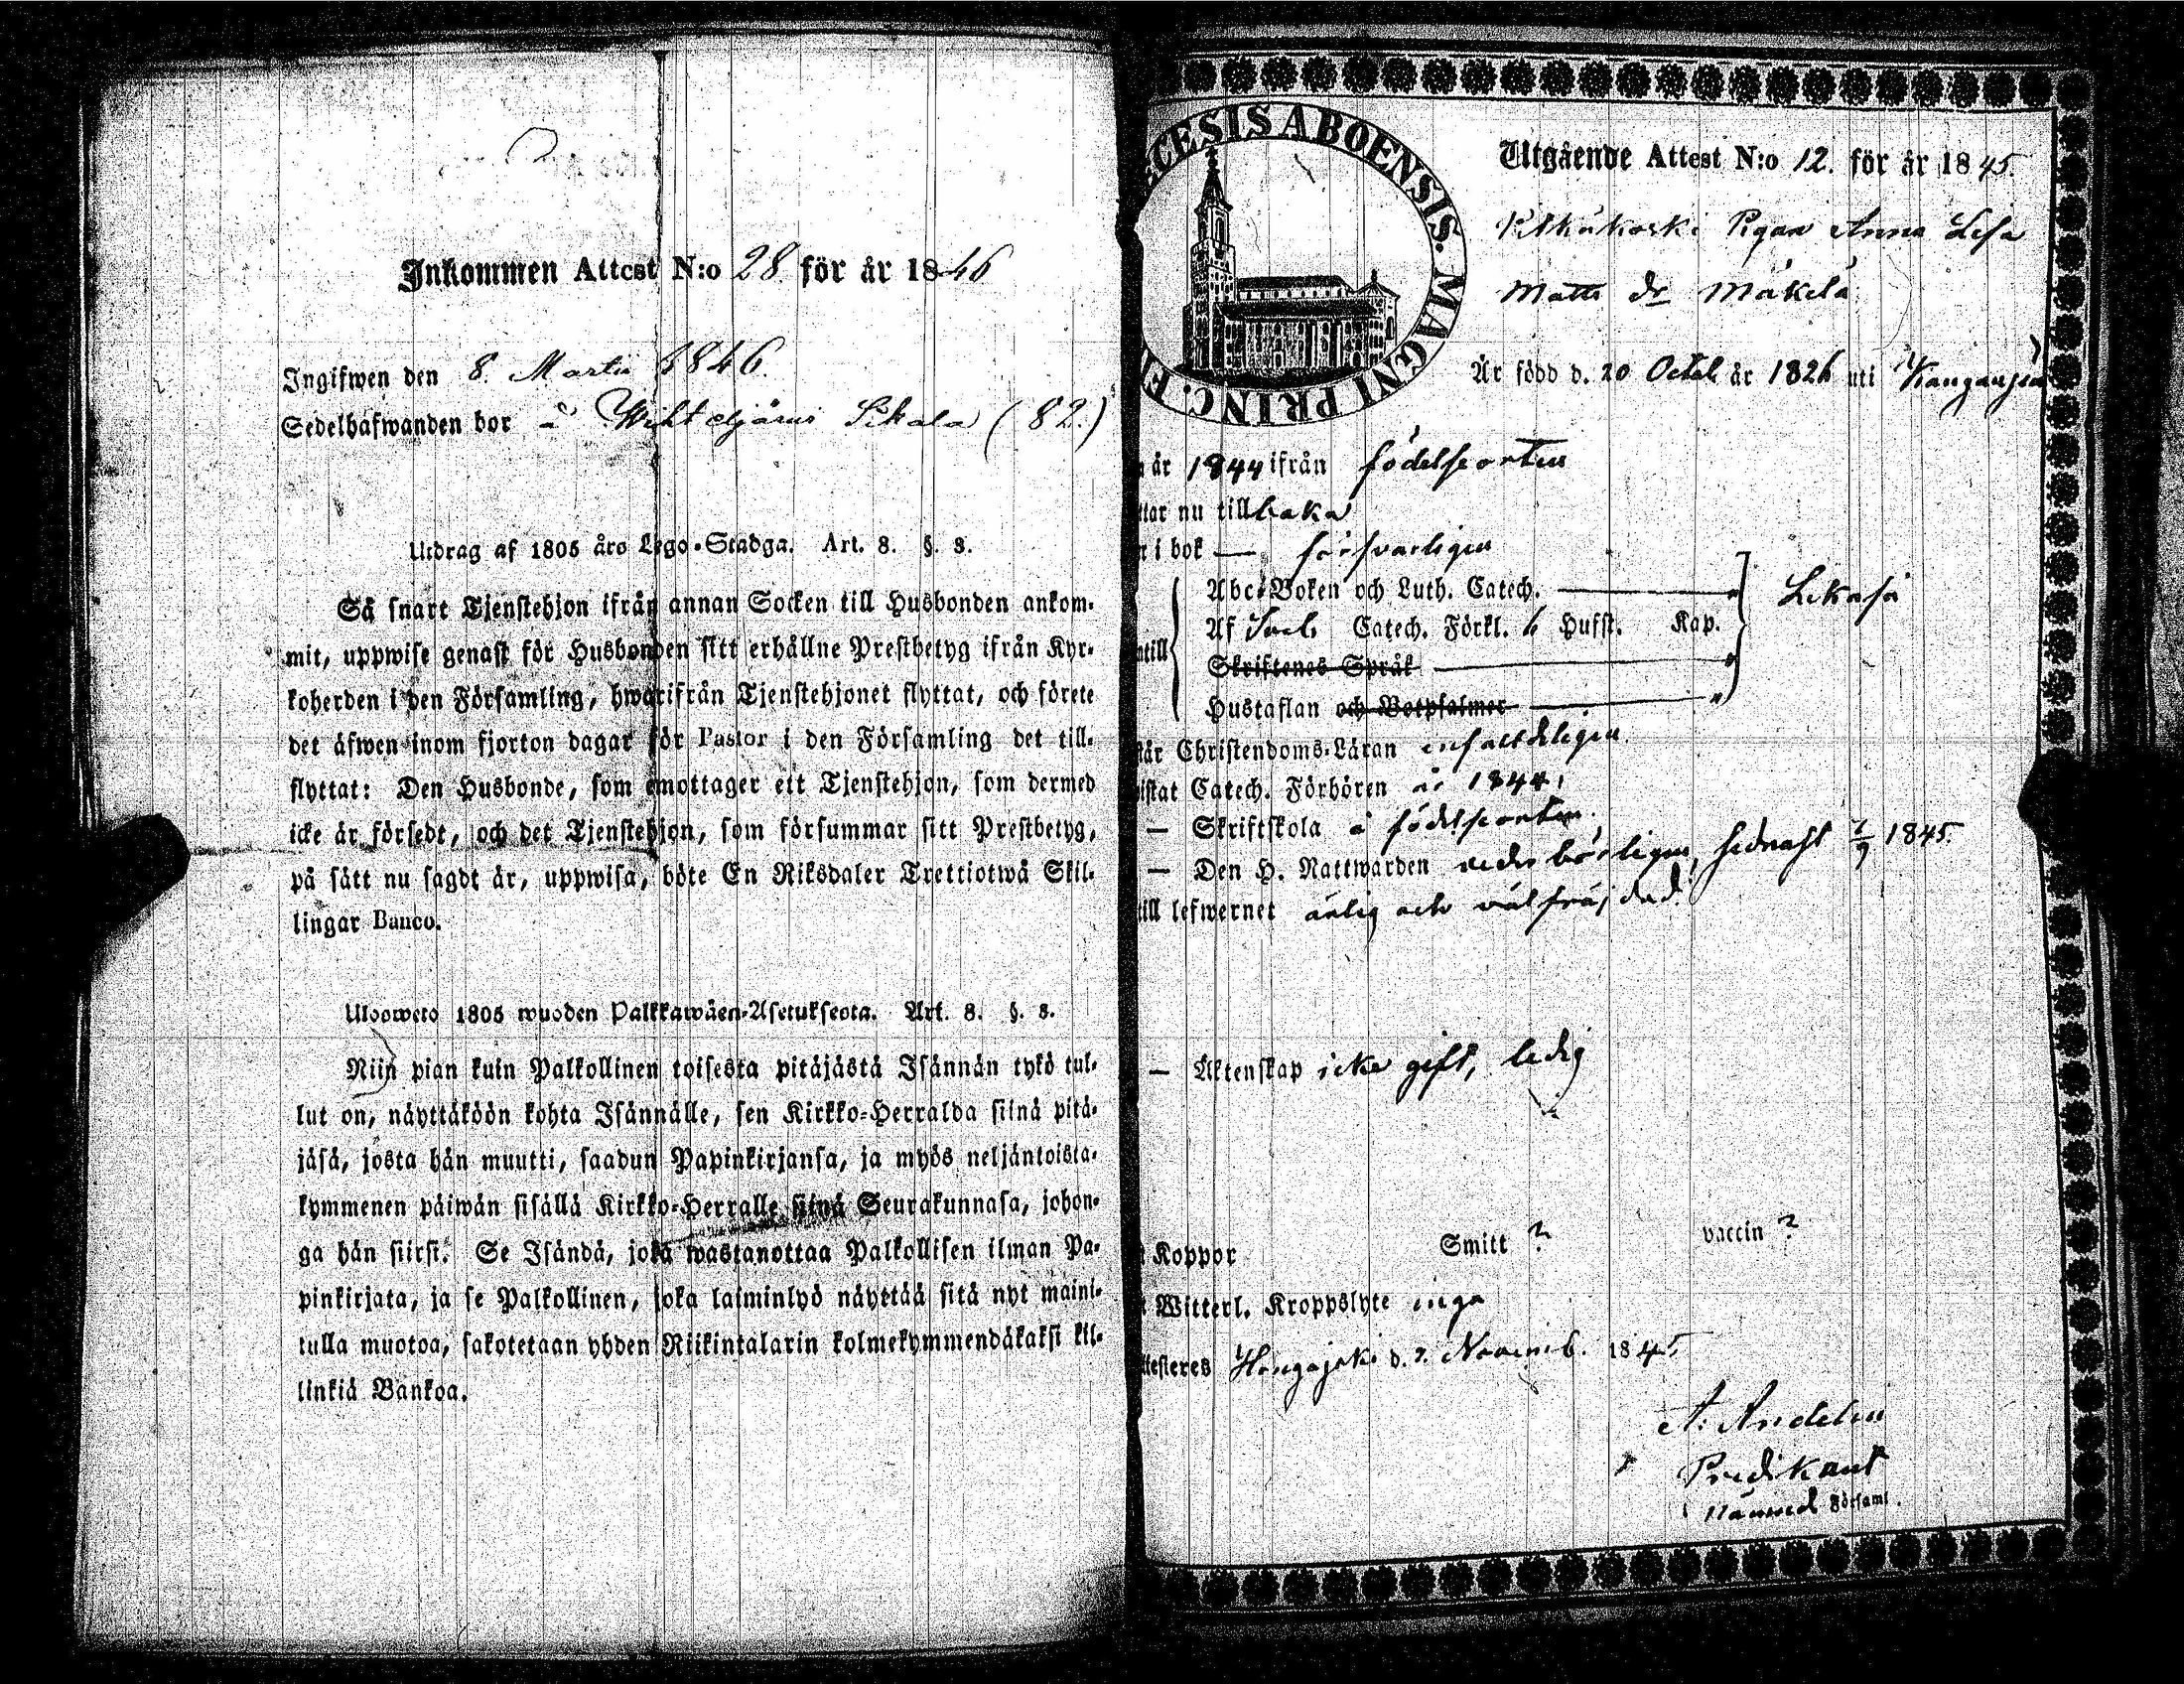 Inkommen Attest N:o 28 för år 1846
Ingifwen den 8. Martii 1846.
Sedelhafwanden bor å Sikala (82.)
Utdrag af 1805 års Lego-Stadga. Art. 8. §. 3.
Så snart Tjenstehjon ifrån annan Socken till Husbonden ankom-
mit, uppwise genast för Husbonden sitt erhållne Prestbetyg ifrån Kyr-
koherden i den Församling, hwarifrån Tjenstehjonet flyttat, och förete
det äfwen inom fjorton dagar för Pastor i den Församling det till-
flyttat: Den Husbonde, som emottager ett Tjenstehjon, som dermed
icke är försedt, och det Tjenstehjon, som försummar sitt Prestbetyg,
på sätt nu sagdt är, uppwisa, böte En Riksdaler Trettiotwå Skil-
lingar Banco.
Ulosweto 1805 wuoden Palkkawäen-Asetuksesta. Art. 8. §. 3.
Niin pian kuin Palkollinen toisesta pitäjästä Isännän tykö tul-
lut on, näyttäköön kohta Isännälle, sen Kirkko-Herralda siinä pitä-
jäsä, josta hän muutti, saadun Papinkirjansa, ja myös neljäntoista-
kymmenen päiwän sisällä Kirkko-Herralle siinä Seurakunnasa, johon-
ga hän siirsi. Se Isändä, joka wastanottaa Palkollisen ilman Pa-
pinkirjata, ja se Palkollinen, joka laiminlyö näyttää sitä nyt maini-
tulla muotoa, sakotetaan yhden Riikintalarin kolmekymmendäkaksi kil-
linkiä Bankoa.
CESIS ABOENSIS. MAGNI PRINC. F
Utgående Attest N:o 12. för år 1845.
Pigan Anna Lisa
Matts dr Mäkelä
Är född d. 20 Octob. år 1826 uti
år 1844 ifrån födelseorten
tar nu tillbaka
i bok — försvarligen
Abc-Boken och Luth. Catech.
Af Sveb. Catech. Förkl. 6 Hufst. Kap.
till
Skriftenes Språk
Hustaflan och Botpsalmer
Lika så
tår Christendoms-Läran enfaldeligen
istat Catech. Förhören år 1844.
— Skriftskola å födelseorten.
— Den H. Nattwarden vederbörligen, sednast 7/9 1845.
till lefwernet ärlig och välfräjdad.
— Äktenskap icke gift, ledig
Koppor Smitt ? vaccin ?
Witterl. Kroppslyte inga
ttesteres Hongojoki d. 7. Novemb. 1845.
A. Andelin
Predikant
i nämnd Församl.